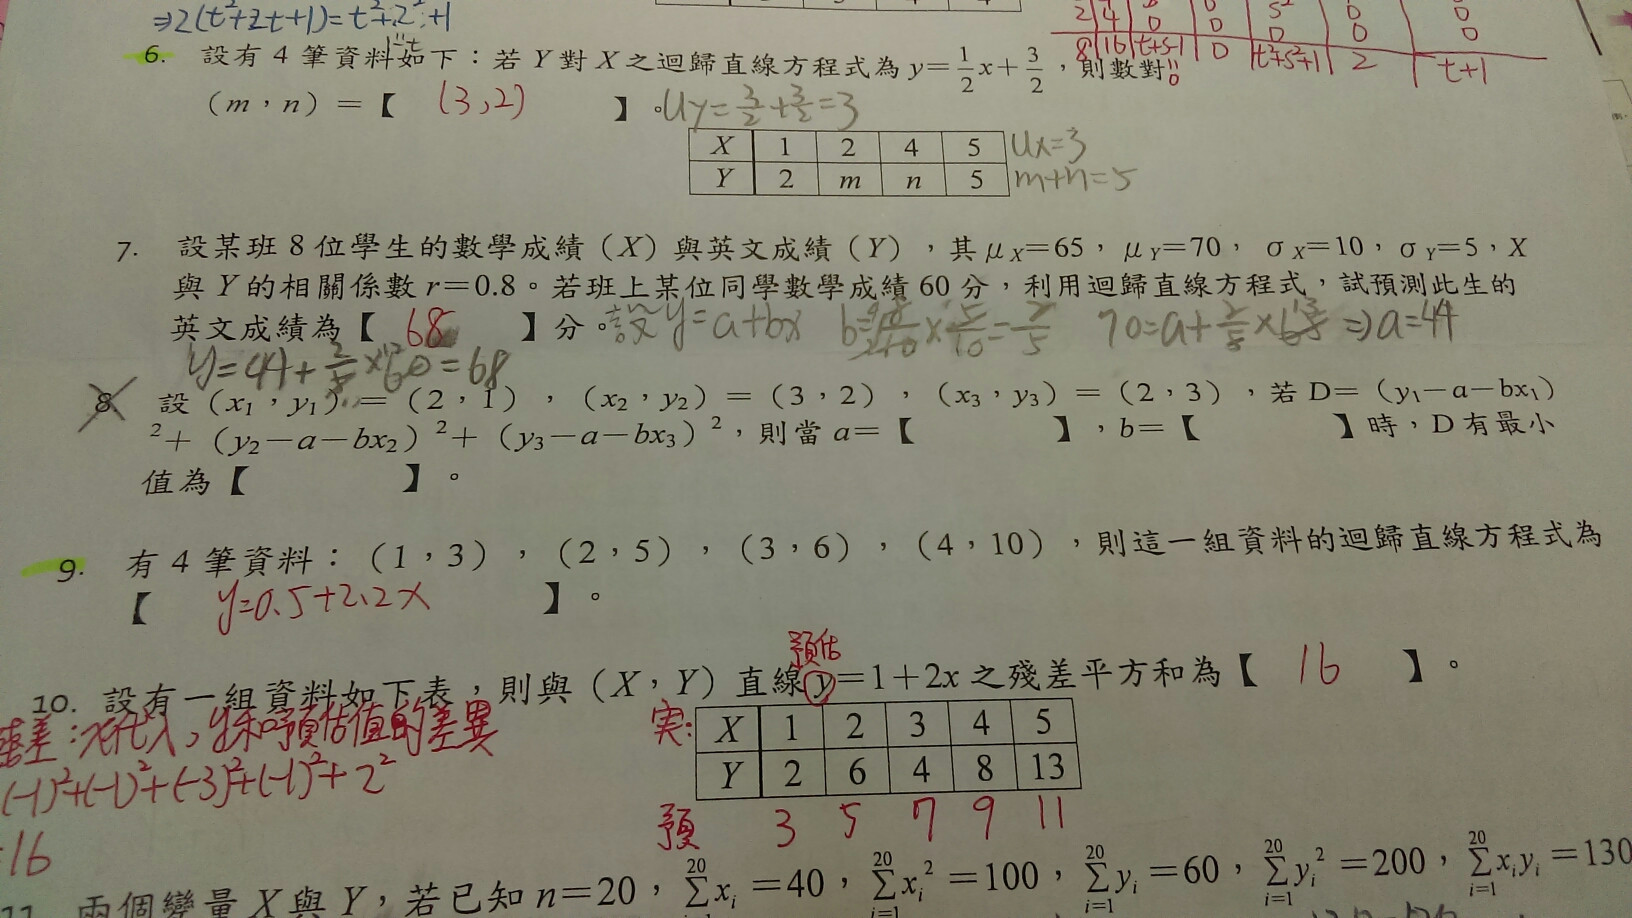 ⇒2(t²+2t+1)=t²+2²+1
2 4 0 0 5² 0 0
0 0 0 0 0
8 16 t+s-1 0 t²+s²+1 2 t+1
6. 設有 4 筆資料如下：若 Y 對 X 之迴歸直線方程式為 y=1/2x+3/2，則數對
（m，n）=【 (3,2) 】。 Uy=3/2+3/2=3
X 1 2 4 5 Ux=3
Y 2 m n 5 m+n=5
7. 設某班 8 位學生的數學成績（X）與英文成績（Y），其 μX=65，μY=70，σX=10，σY=5，X
與 Y 的相關係數 r=0.8。若班上某位同學數學成績 60 分，利用迴歸直線方程式，試預測此生的
英文成績為【 68 】分。設 y=a+bx b= × 5/10=2/5 70=a+2/5×65 ⇒a=44
y=44+2/5×60=68
8. 設（x1，y1）=（2，1），（x2，y2）=（3，2），（x3，y3）=（2，3），若 D=（y1-a-bx1）
²+（y2-a-bx2）²+（y3-a-bx3）²，則當 a=【 】，b=【 】時，D 有最小
值為【 】。
9. 有 4 筆資料：（1，3），（2，5），（3，6），（4，10），則這一組資料的迴歸直線方程式為
【 y=0.5+2.2x 】。
預估
10. 設有一組資料如下表，則與（X，Y）直線 y=1+2x 之殘差平方和為【 16 】。
差：x代入，y和預估值的差異
実: X 1 2 3 4 5
Y 2 6 4 8 13
(-1)²+(-1)²+(-3)²+(-1)²+2²
預 3 5 7 9 11
=16
11. 兩個變量 X 與 Y，若已知 n=20，∑xi=40，∑xi²=100，∑yi=60，∑yi²=200，∑xiyi=130